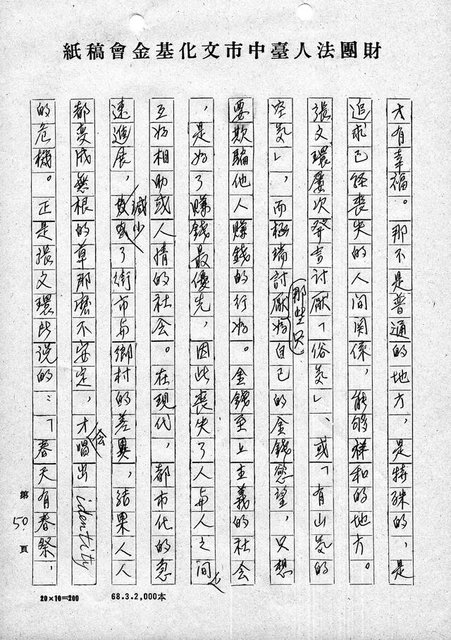 財團法人臺中市文化基金會稿紙
才有幸福。那不是普通的地方，是特殊的，是
追求已經喪失的人間關係，能夠祥和的地方。
張文環屢次發言討厭「俗氣」、或「有山氣的
空氣」，而極端討厭那些只為自己的金錢慾望，只想
要欺騙他人賺錢的行為。金錢至上主義的社會
，是為了賺錢最優先，因此喪失了人與人之間
互為相助或人情的社會。在現代，都市化的急
速進展，減少了街市與鄉村的差異，結果人人
都變成無根的草那麼不安定，才會唱出identity
的危機。正是張文環所說的：「春天有春祭，
第50頁
20×10=200
68.3.2,000本